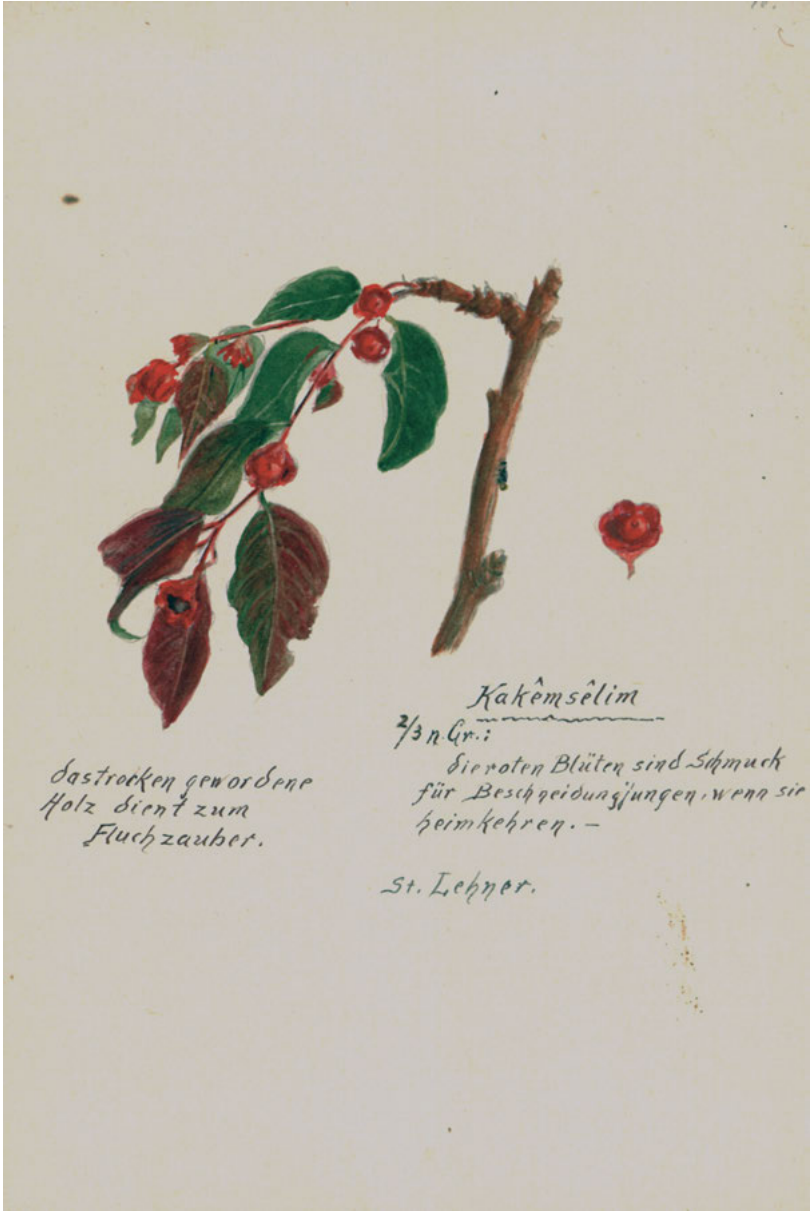 Kakêmsêlim
2/3 n. Gr.:
die roten Blüten sind Schmuck
für Beschneidungjungen, wenn sie
heimkehren. –
das trocken gewordene
Holz dient zum
Fluchzauber.
St. Lehner.